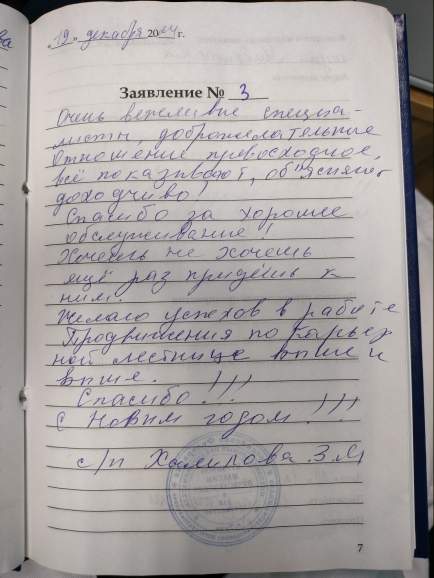 „19" декабря 2024 г.
Заявление № 3
Очень вежливые специа-
листы, доброжелательные
Отношение превосходное,
всё показывают, объясняют
доходчиво!
Спасибо за хорошее
обслуживание!!
Хочешь не хочешь
ещё раз придёшь к
ним.
Желаю успехов в работе
Продвижения по карьер
ной лестнице выше и
выше.
Спасибо !!!
С Новым годом !!!
с/п Халилова З.М
7